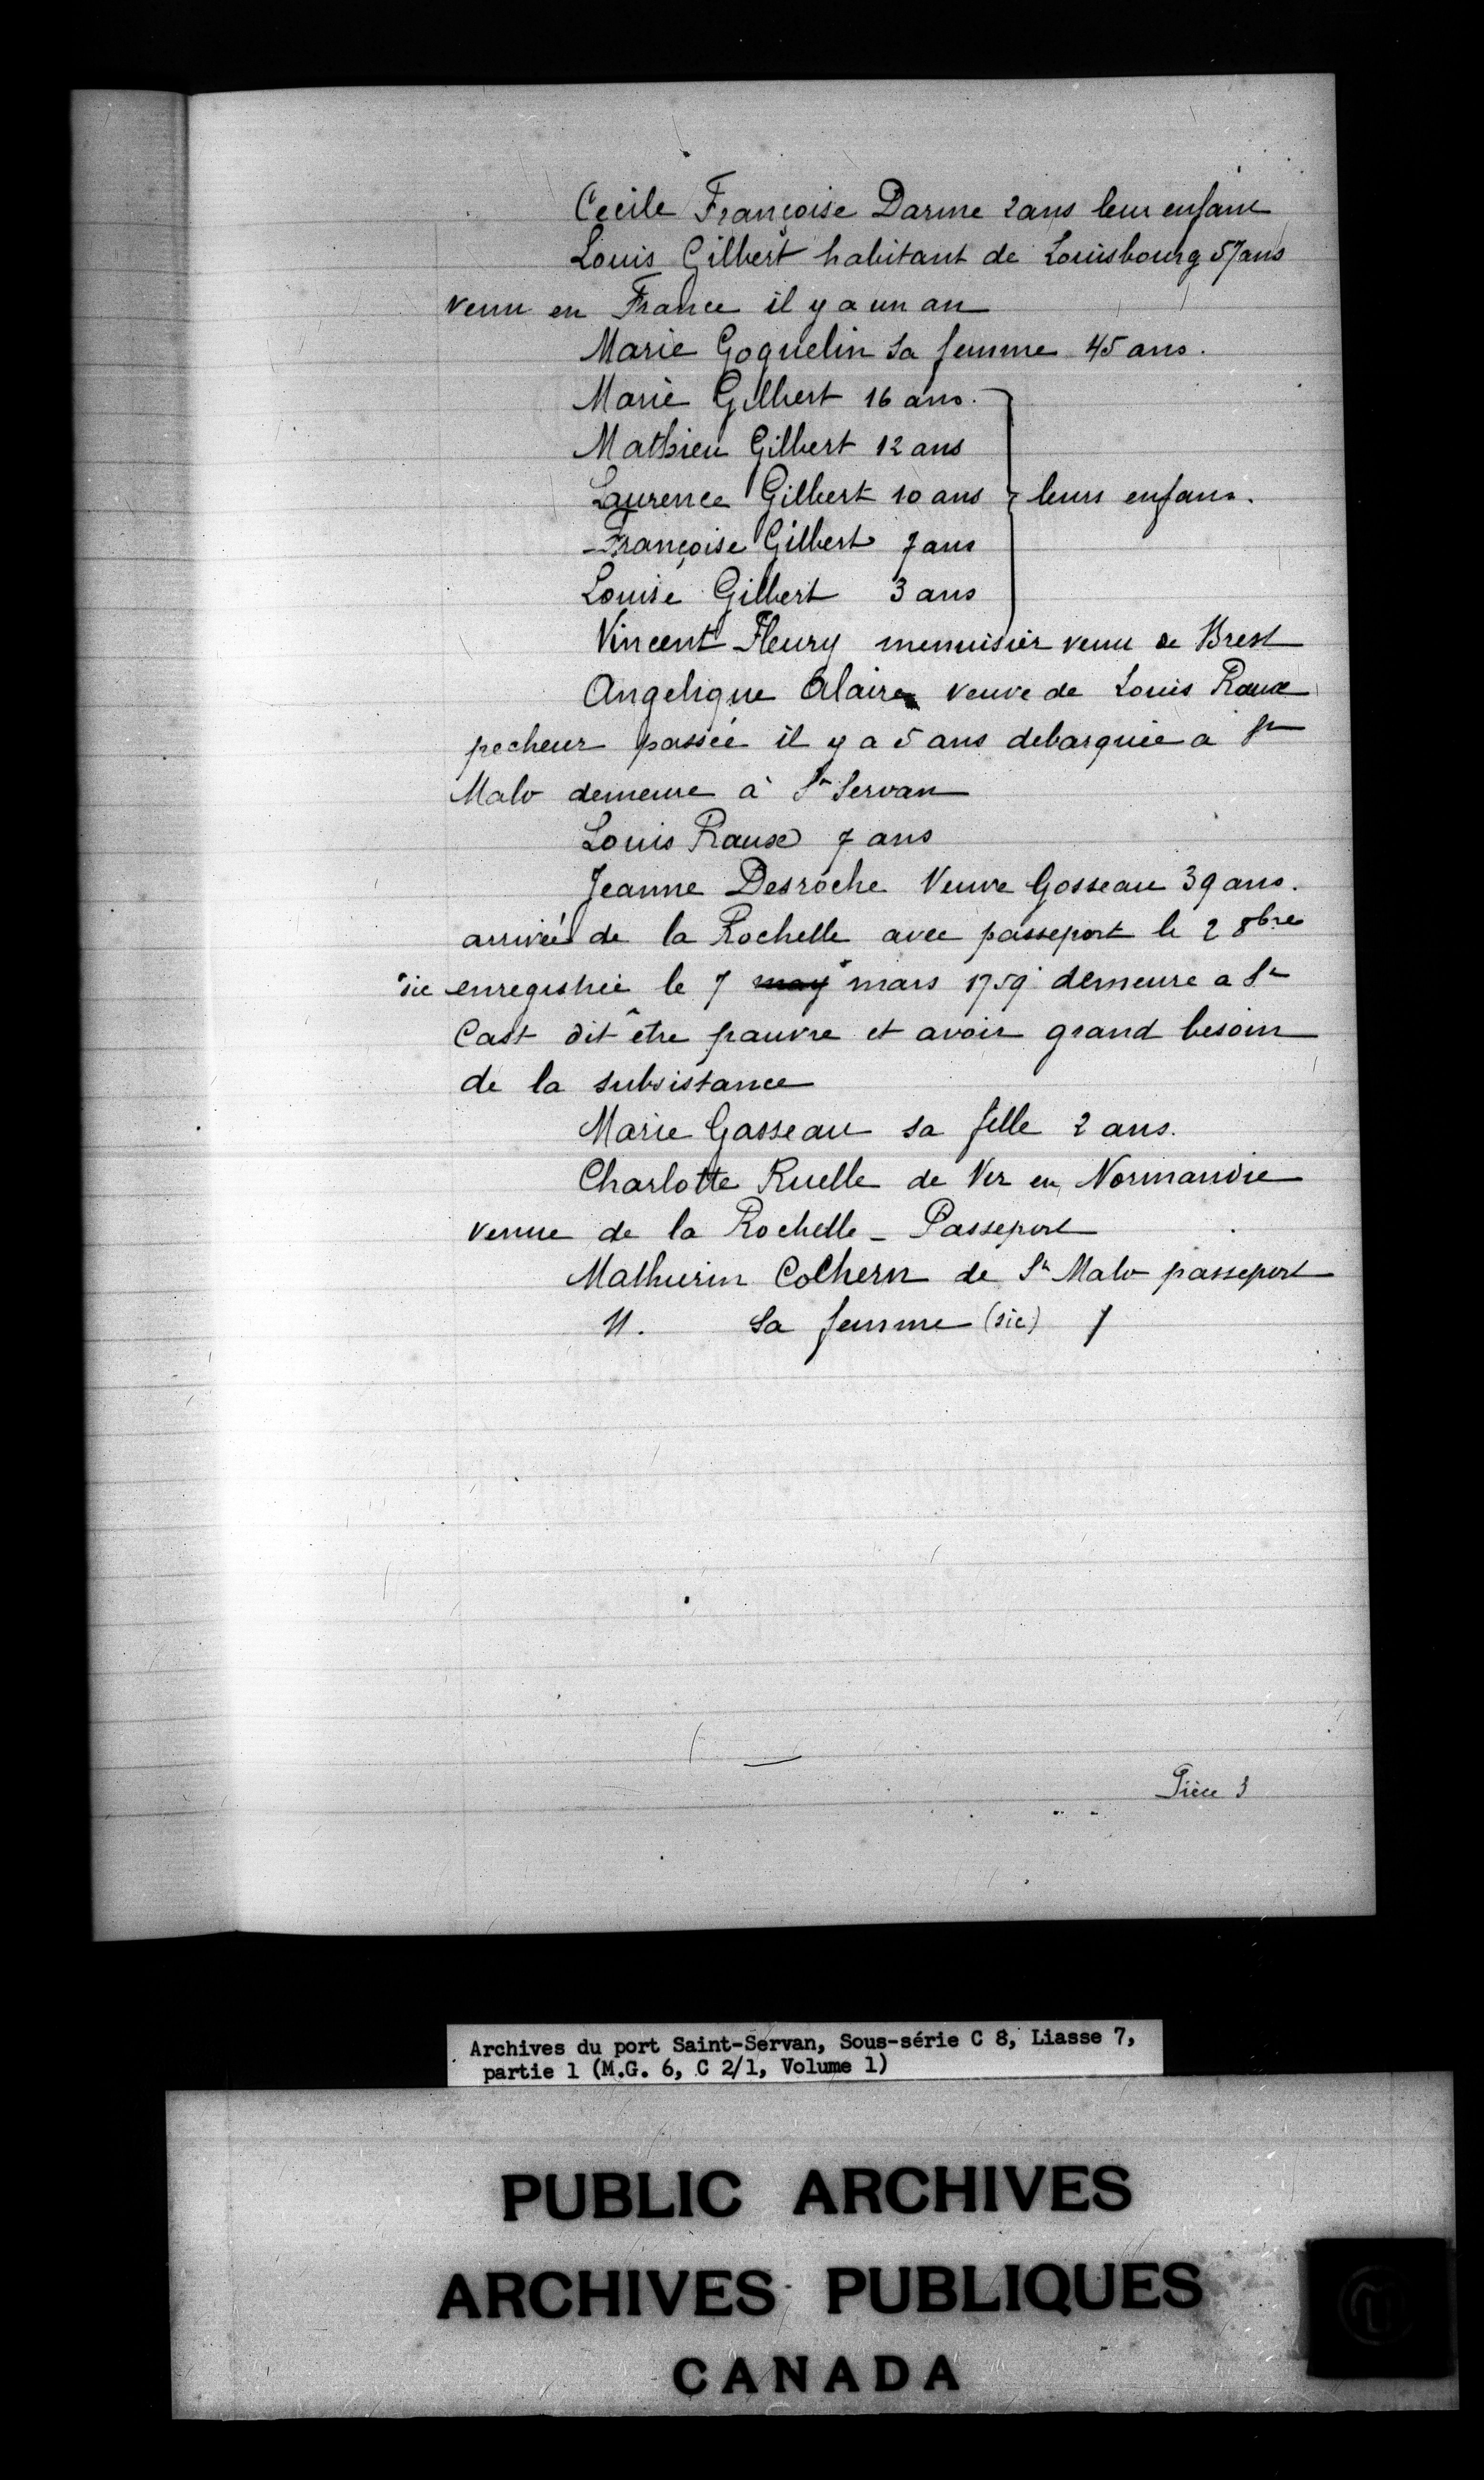 Cecile Françoise Darme 2 ans leur enfant
Louis Gilbert habitant de Louisbourg 57 ans
venu en France il y a un an
Marie Goquelin sa femme 45 ans.
Marie Gilbert 16 ans.
Mathieu Gilbert 12 ans
Laurence Gilbert 10 ans } leurs enfans.
Françoise Gilbert 7 ans
Louise Gilbert 3 ans
Vincent Fleury menuisier venu de Brest
Angelique Alaire veuve de Louis Raux
pecheur passée il y a 5 ans debarquée a St
Malo demeure à St Servan
Louis Raux 7 ans
Jeanne Desroche Veuve Gosseau 39 ans.
arrivée de la Rochelle avec passeport le 2 8bre
sic enregistrée le 7 may mars 1759 demeure a St
Cast dit être pauvre et avoir grand besoin
de la subsistance
Marie Gasseau sa fille 2 ans.
Charlotte Ruelle de Ver en Normandie
venue de la Rochelle - Passeport
Mathurin Cothern de St Malo passeport
N. sa femme (sic)
Pièce 3
Archives du port Saint-Servan, Sous-série C 8, Liasse 7,
partie 1 (M.G. 6, C 2/1, Volume 1)
PUBLIC ARCHIVES
ARCHIVES PUBLIQUES
CANADA